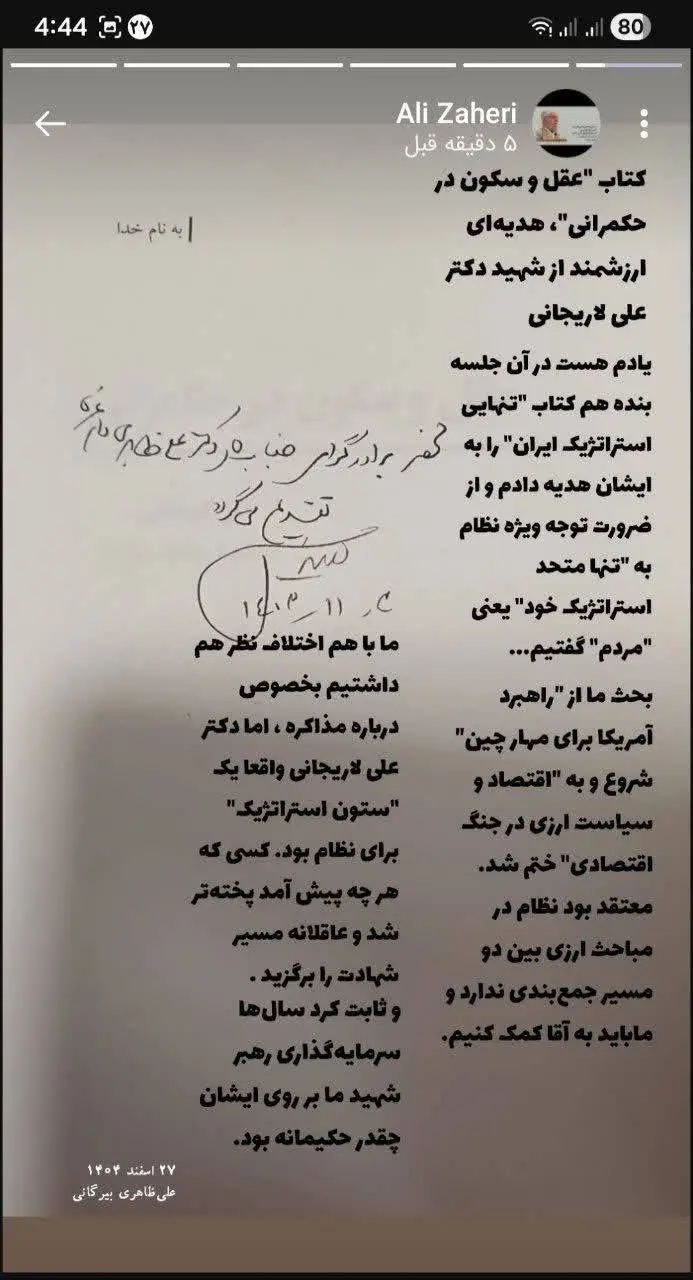 4:44 ۲۷ 80
Ali Zaheri
۵ دقیقه قبل
به نام خدا
کتاب "عقل و سکون در
حکمرانی"، هدیه‌ای
ارزشمند از شهید دکتر
علی لاریجانی
یادم هست در آن جلسه
بنده هم کتاب "تنهایی
استراتژیک ایران" را به
ایشان هدیه دادم و از
ضرورت توجه ویژه نظام
به "تنها متحد
استراتژیک خود" یعنی
"مردم" گفتیم...
بحث ما از "راهبرد
آمریکا برای مهار چین"
شروع و به "اقتصاد و
سیاست ارزی در جنگ
اقتصادی" ختم شد.
معتقد بود نظام در
مباحث ارزی بین دو
مسیر جمع‌بندی ندارد و
ماباید به آقا کمک کنیم.
برادر گرامی جناب دکتر علی ظاهری
تقدیم می‌گردد
ما با هم اختلاف نظر هم
داشتیم بخصوص
درباره مذاکره ، اما دکتر
علی لاریجانی واقعا یک
"ستون استراتژیک"
برای نظام بود. کسی که
هر چه پیش آمد پخته‌تر
شد و عاقلانه مسیر
شهادت را برگزید .
و ثابت کرد سال‌ها
سرمایه‌گذاری رهبر
شهید ما بر روی ایشان
چقدر حکیمانه بود.
۲۷ اسفند ۱۴۰۴
علی‌ظاهری بیرگانی